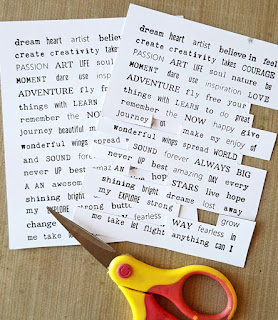 dream heart artist believe
create creativity takes
PASSION ART LIFE soul
MOMENT dare use inspi
ADVENTURE fly free
things with LEARN
remember the NOW
journey beautiful m
Wonderful wings spread
and SOUND forever
never UP best amaz
A AN awesom
shining bright
my EXPLORE strong
change
me take
dream heart artist believe in feel
create creativity takes COURAGE
PASSION ART LIFE soul nature be
MOMENT dare use inspiration LOVE
ADVENTURE fly free your
things with LEARN to do great
remember the NOW happy give
journey make my enjoy of
Wonderful wings spread WORLD
and SOUND forever ALWAYS BIG
never UP best amazing Day every
A AN hop STARS live hope
shining bright dreams lost away
my EXPLORE strong
butt grow
fearless WAY fearless in
me take let flight anything can I